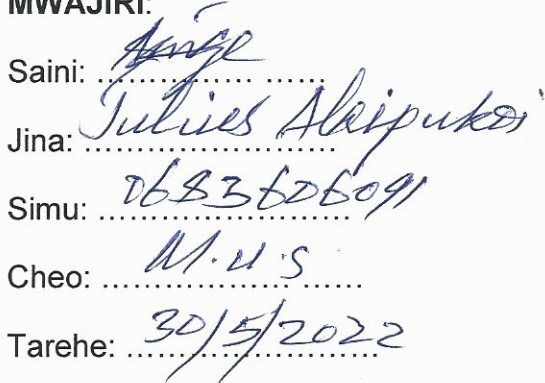 MWAJIRI:
Saini: ....................
Jina: Julius Alaipukoi
Simu: 0683606091
Cheo: M.U.S
Tarehe: 30/5/2022